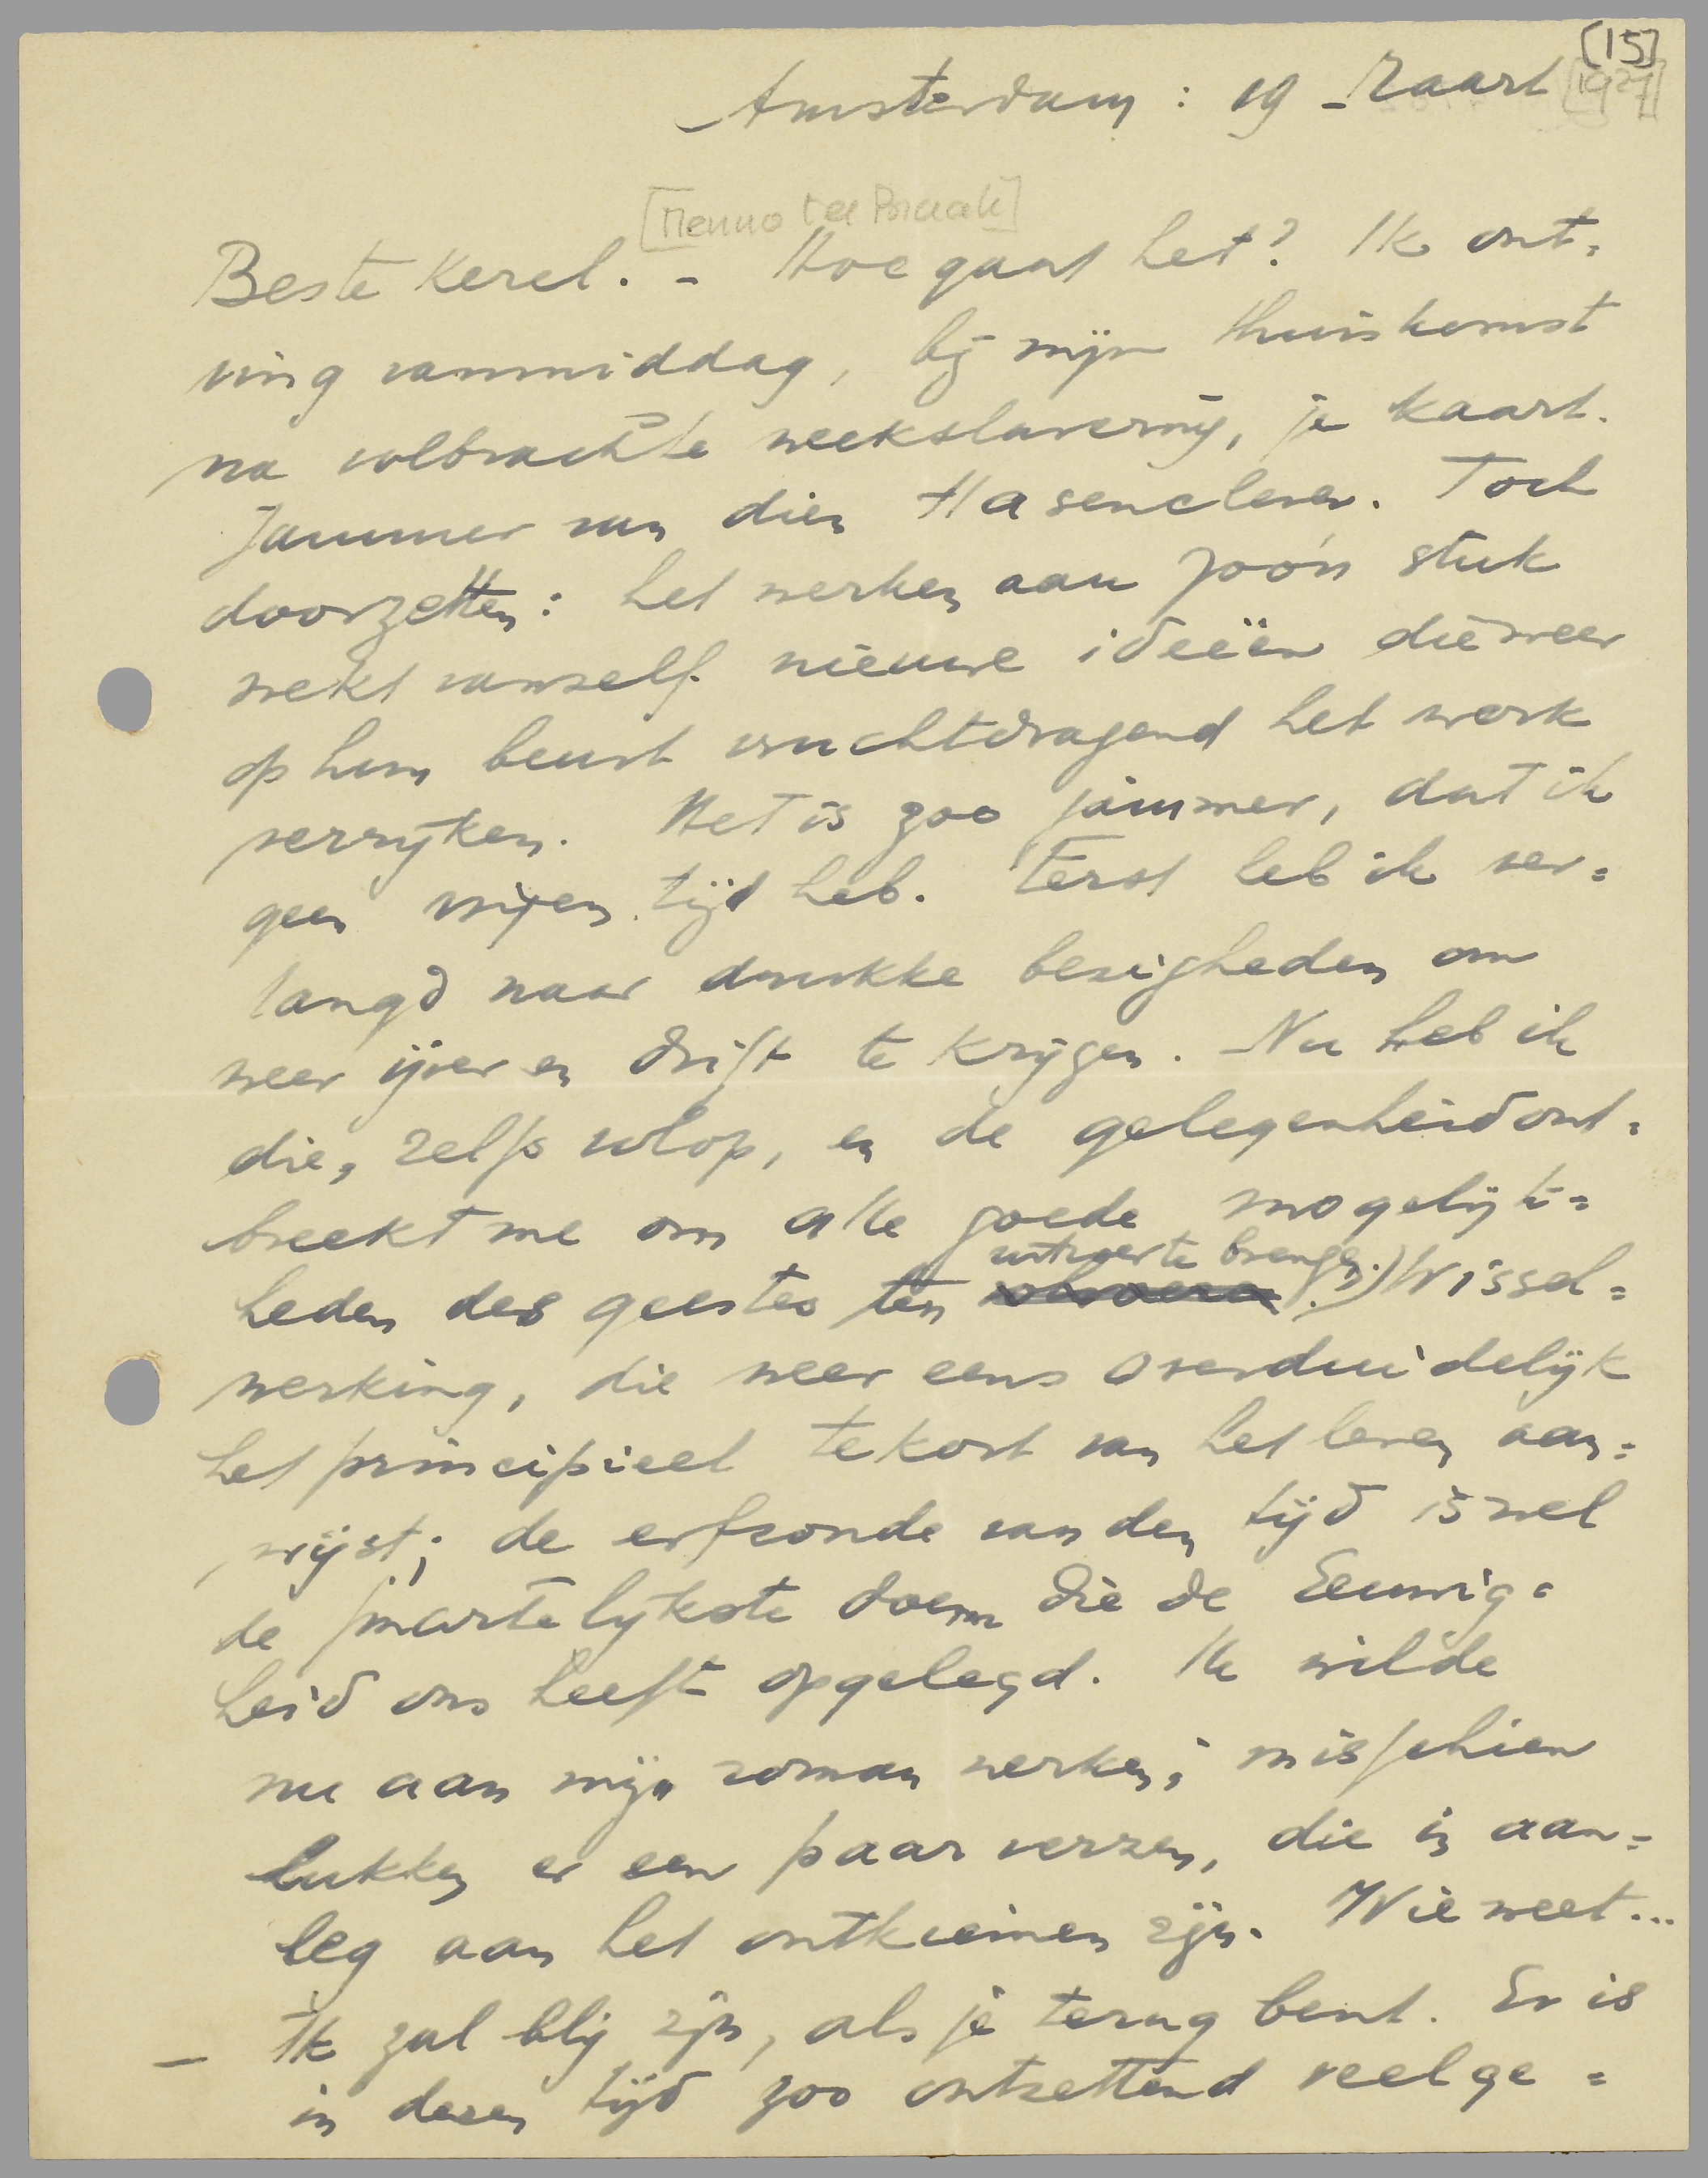 [15]
Amsterdam : 19 Maart [1927]
[Menno ter Braak]
Beste Kerel. - Hoe gaat het? Ik ont=
ving vanmiddag, bij mijn thuiskomst
na volbrachte weekslavernij, je kaart.
Jammer van dien Hasenclever. Toch
doorzetten: het werken aan zoo'n stuk
wekt vanzelf nieuwe ideeën die weer
op hun beurt vruchtdragend het werk
verrijken. Het is zoo jammer, dat ik
geen vrijen tijd heb. Eerst heb ik ver=
langd naar drukke bezigheden om
weer ijver en drift te krijgen. Nu heb ik
die, zelfs volop, en de gelegenheid ont=
breekt me om alle goede mogelijk=
heden des geestes ten uitvoer te brengen. Wissel=
werking, die weer eens overduidelijk
het principieel tekort van het leven aan=
wijst; de erfzonde van den tijd is wel
de smartelijkste doem die de Eeuwig=
heid ons heeft opgelegd. Ik wilde
nu aan mijn roman werken; misschien
lukken er een paar verzen, die in aan=
leg aan het ontkiemen zijn. Wie weet...
— Ik zal blij zijn, als je terug bent. Er is
in dezen tijd zoo ontzettend veel ge=